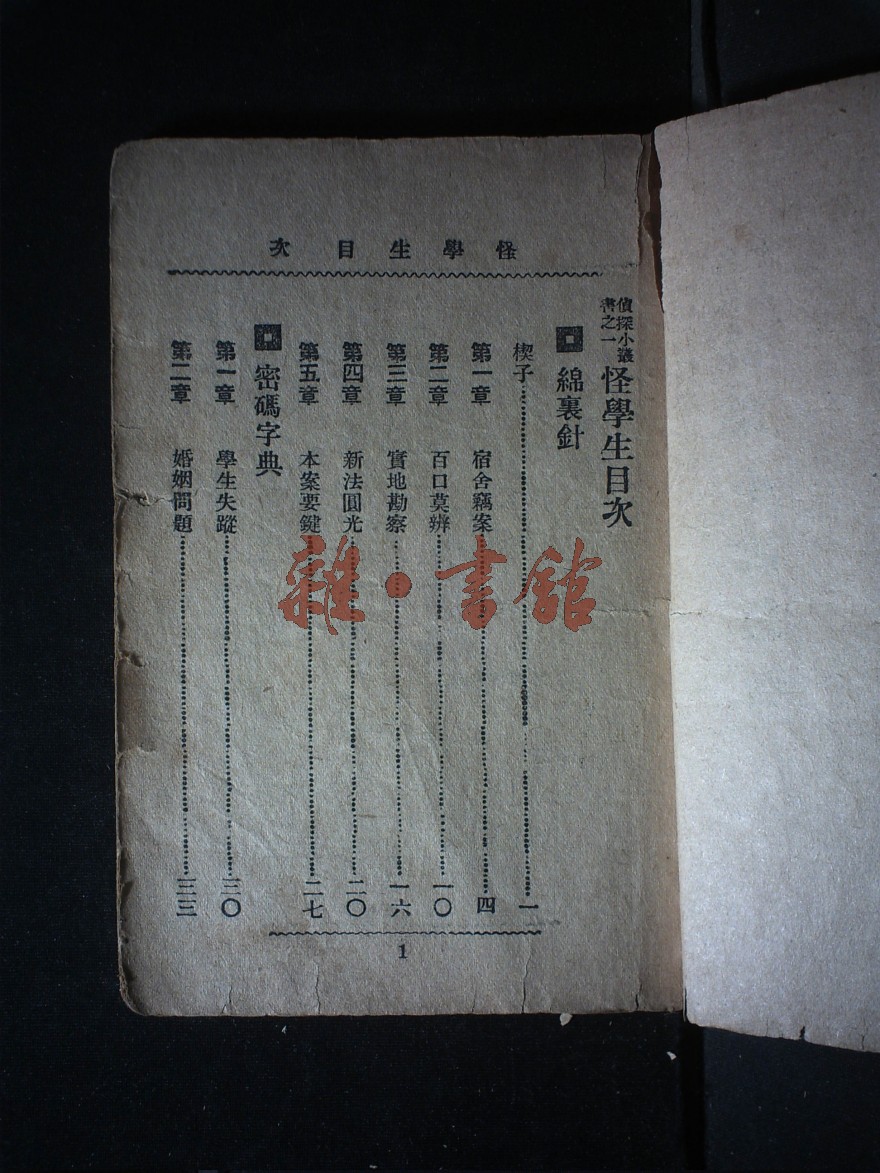 怪學生目次
偵探小叢書之一 怪學生目次
綿裏針
楔子 一
第一章 宿舍竊案 四
第二章 百口莫辨 一〇
第三章 實地勘察 一六
第四章 新法圓光 二〇
第五章 本案要鍵 二七
密碼字典
第一章 學生失蹤 三〇
第二章 婚姻問題 三三
1
雜·書館